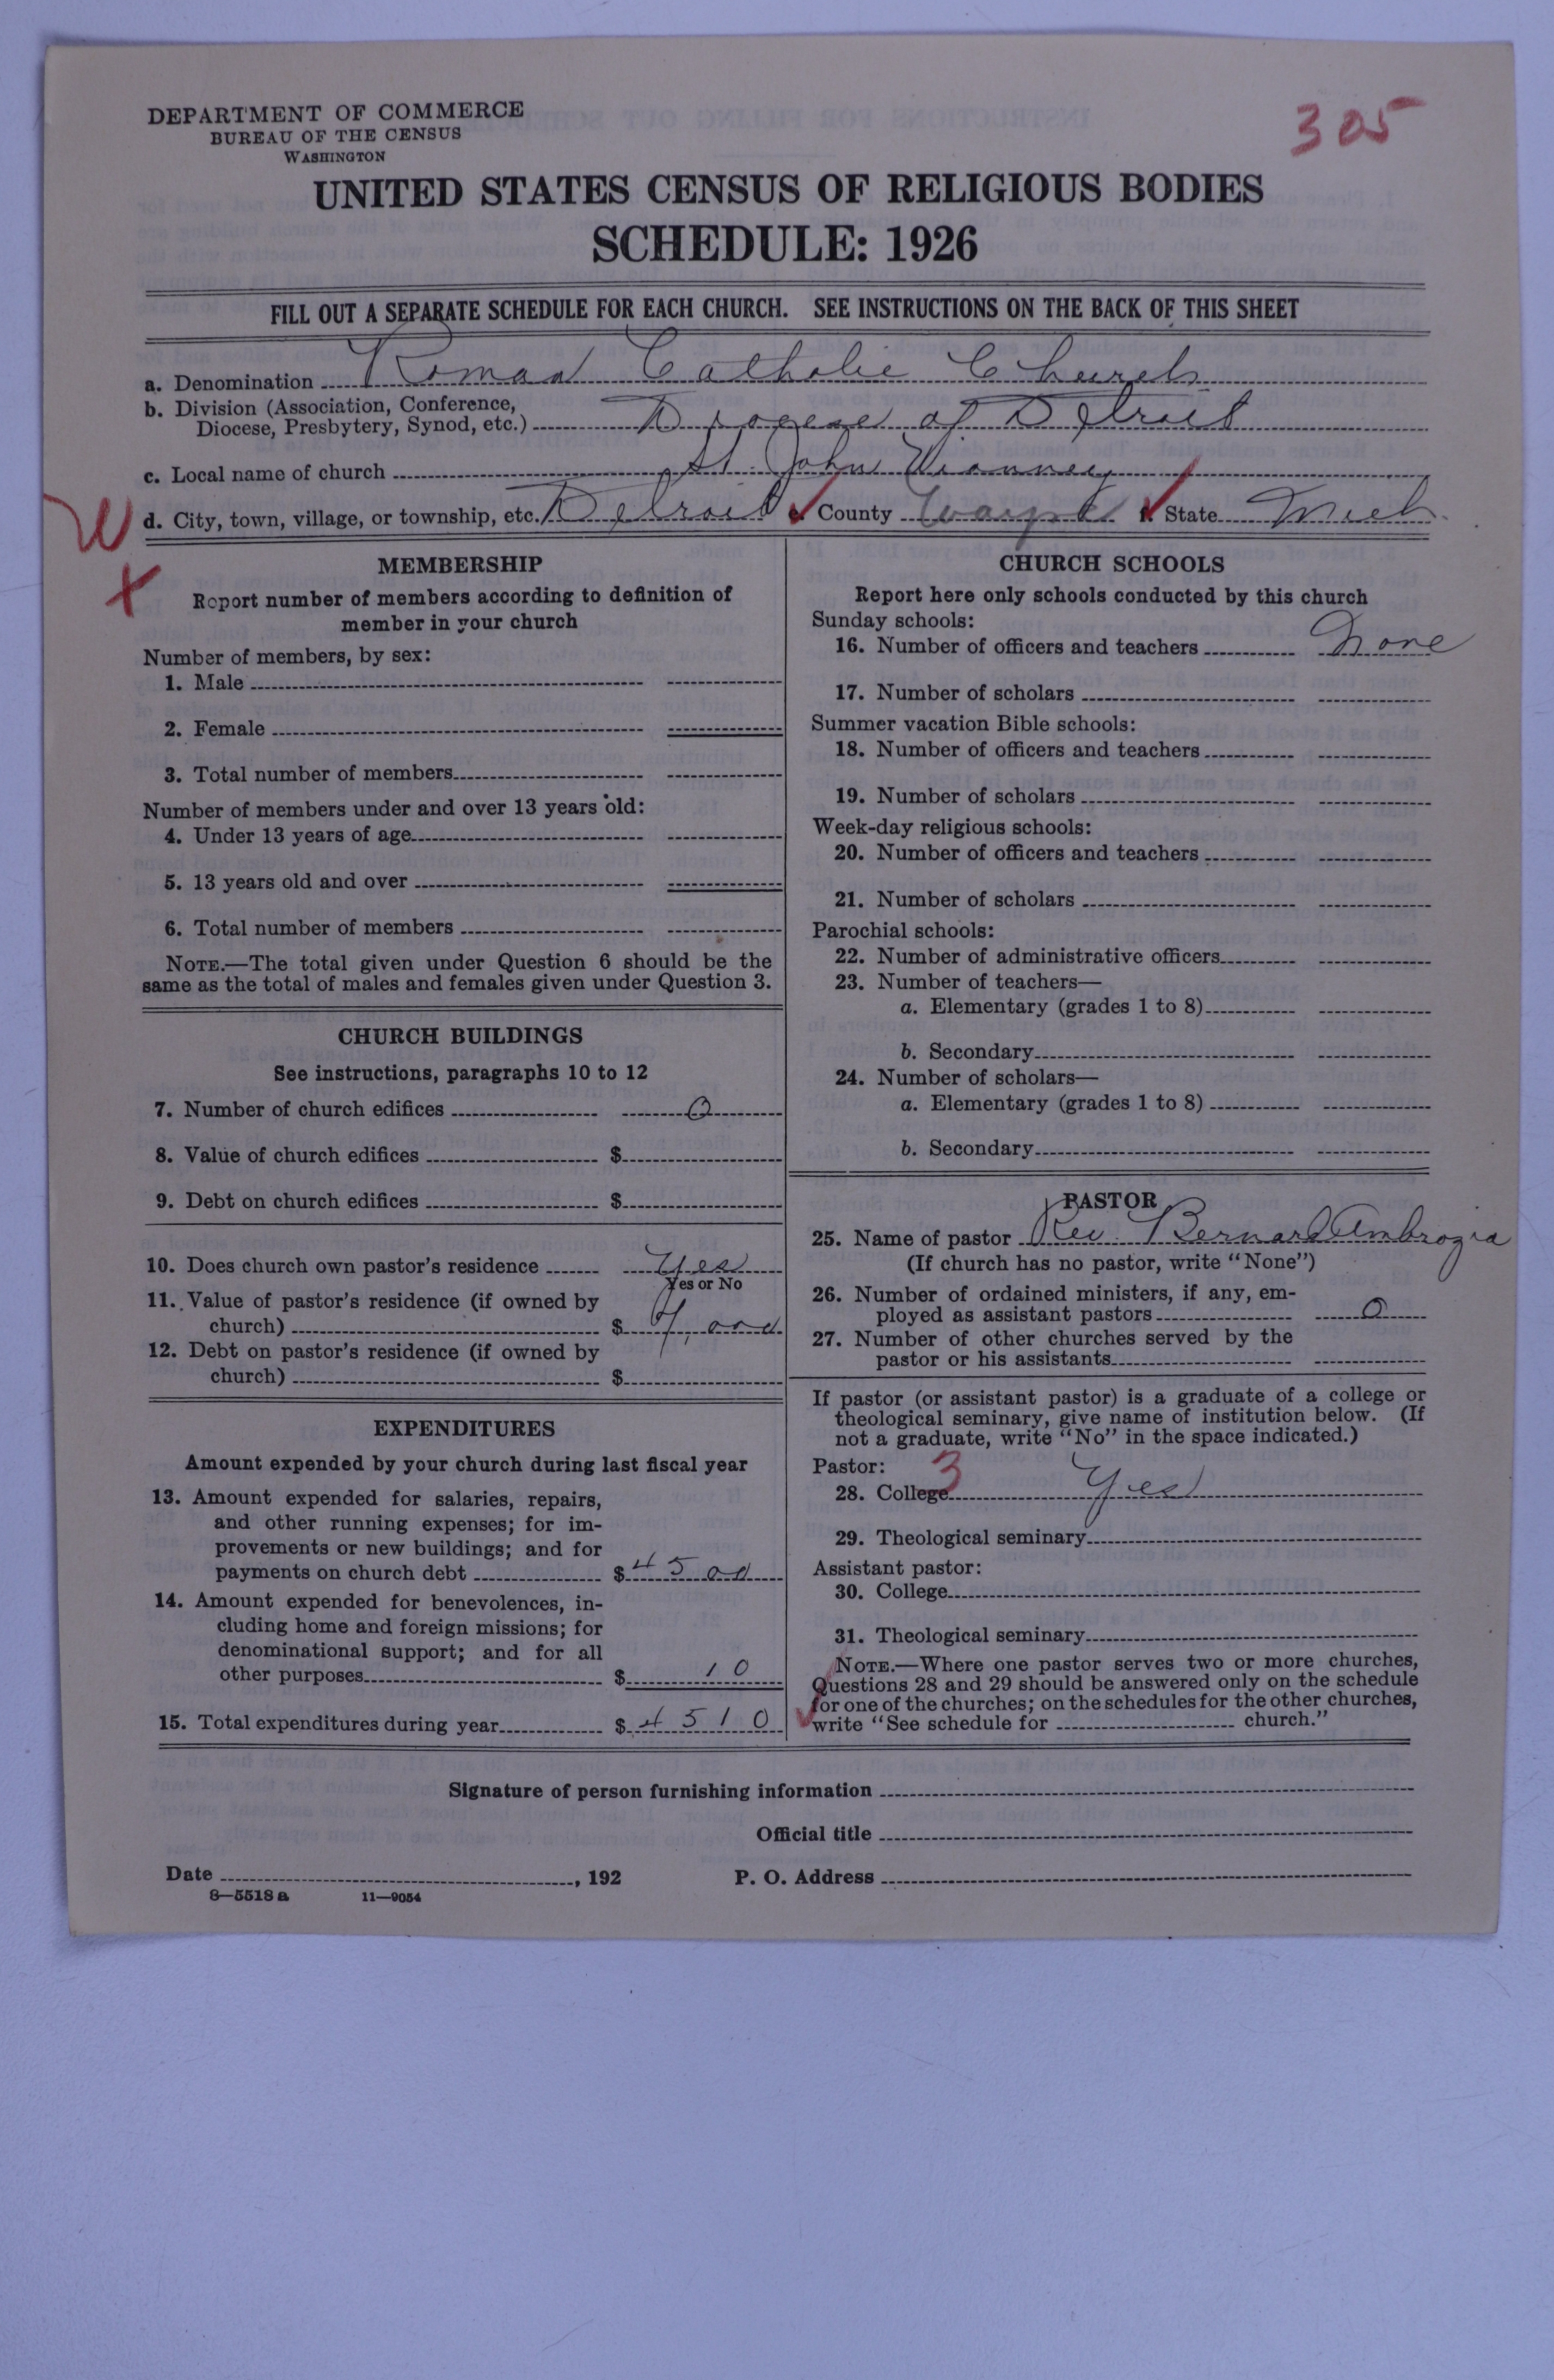 305
DEPARTMENT OF COMMERCE
BUREAU OF THE CENSUS
WASHINGTON
UNITED STATES CENSUS OF RELIGIOUS BODIES
SCHEDULE: 1926
FILL OUT A SEPARATE SCHEDULE FOR EACH CHURCH. SEE INSTRUCTIONS ON THE BACK OF THIS SHEET
a. Denomination Roman Catholic Church
b. Division (Association, Conference,
Diocese, Presbytery, Synod, etc.) Diocese of Detroit
c. Local name of church St. John Vianney
W d. City, town, village, or township, etc. Detroit County Wayne State Mich.
X
MEMBERSHIP
Report number of members according to definition of
member in your church
Number of members, by sex:
1. Male
2. Female
3. Total number of members
Number of members under and over 13 years old:
4. Under 13 years of age
5. 13 years old and over
6. Total number of members
NOTE.—The total given under Question 6 should be the
same as the total of males and females given under Question 3.
CHURCH BUILDINGS
See instructions, paragraphs 10 to 12
7. Number of church edifices 0
8. Value of church edifices $
9. Debt on church edifices $
10. Does church own pastor's residence Yes
Yes or No
11. Value of pastor's residence (if owned by
church) $ 7,000
12. Debt on pastor's residence (if owned by
church) $
EXPENDITURES
Amount expended by your church during last fiscal year
13. Amount expended for salaries, repairs,
and other running expenses; for im-
provements or new buildings; and for
payments on church debt $ 4500
14. Amount expended for benevolences, in-
cluding home and foreign missions; for
denominational support; and for all
other purposes $ 10
15. Total expenditures during year $ 4510
CHURCH SCHOOLS
Report here only schools conducted by this church
Sunday schools:
16. Number of officers and teachers None
17. Number of scholars
Summer vacation Bible schools:
18. Number of officers and teachers
19. Number of scholars
Week-day religious schools:
20. Number of officers and teachers
21. Number of scholars
Parochial schools:
22. Number of administrative officers
23. Number of teachers—
a. Elementary (grades 1 to 8)
b. Secondary
24. Number of scholars—
a. Elementary (grades 1 to 8)
b. Secondary
PASTOR
25. Name of pastor Rev. Bernard Ambrogia
(If church has no pastor, write "None")
26. Number of ordained ministers, if any, em-
ployed as assistant pastors 0
27. Number of other churches served by the
pastor or his assistants
If pastor (or assistant pastor) is a graduate of a college or
theological seminary, give name of institution below. (If
not a graduate, write "No" in the space indicated.)
Pastor: 3
28. College Yes
29. Theological seminary
Assistant pastor:
30. College
31. Theological seminary
NOTE.—Where one pastor serves two or more churches,
Questions 28 and 29 should be answered only on the schedule
for one of the churches; on the schedules for the other churches,
write "See schedule for church."
Signature of person furnishing information
Official title
Date , 192 P. O. Address
8—5518 a 11—9054